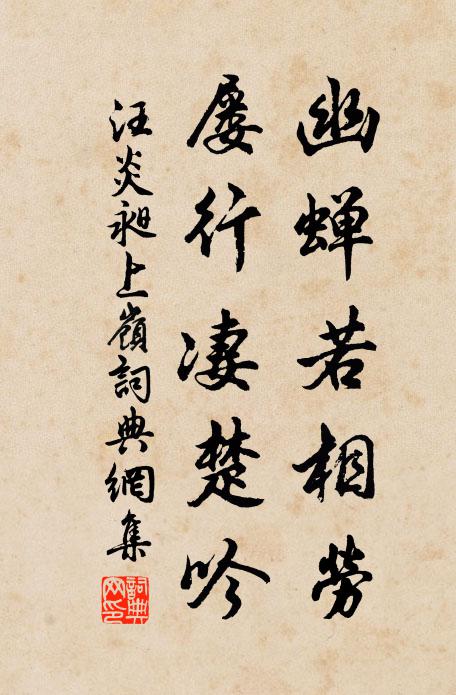 幽蝉若相勞
屡行凄楚吟
汪炎昶上嶺詞典網集
詞典网印